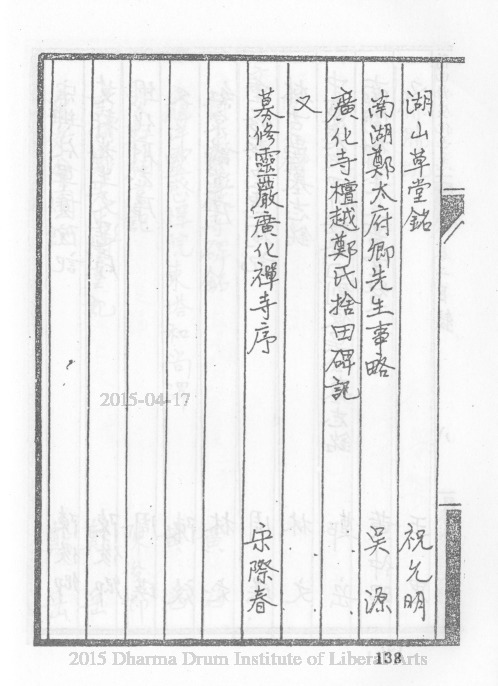 湖山草堂銘 祝允明
南湖鄭太府卿先生事略 吳源
廣化寺檀越鄭氏捨田碑記
又
募修靈巖廣化禪寺序 宋際春
2015-04-17
138
2015 Dharma Drum Institute of Liberal Arts